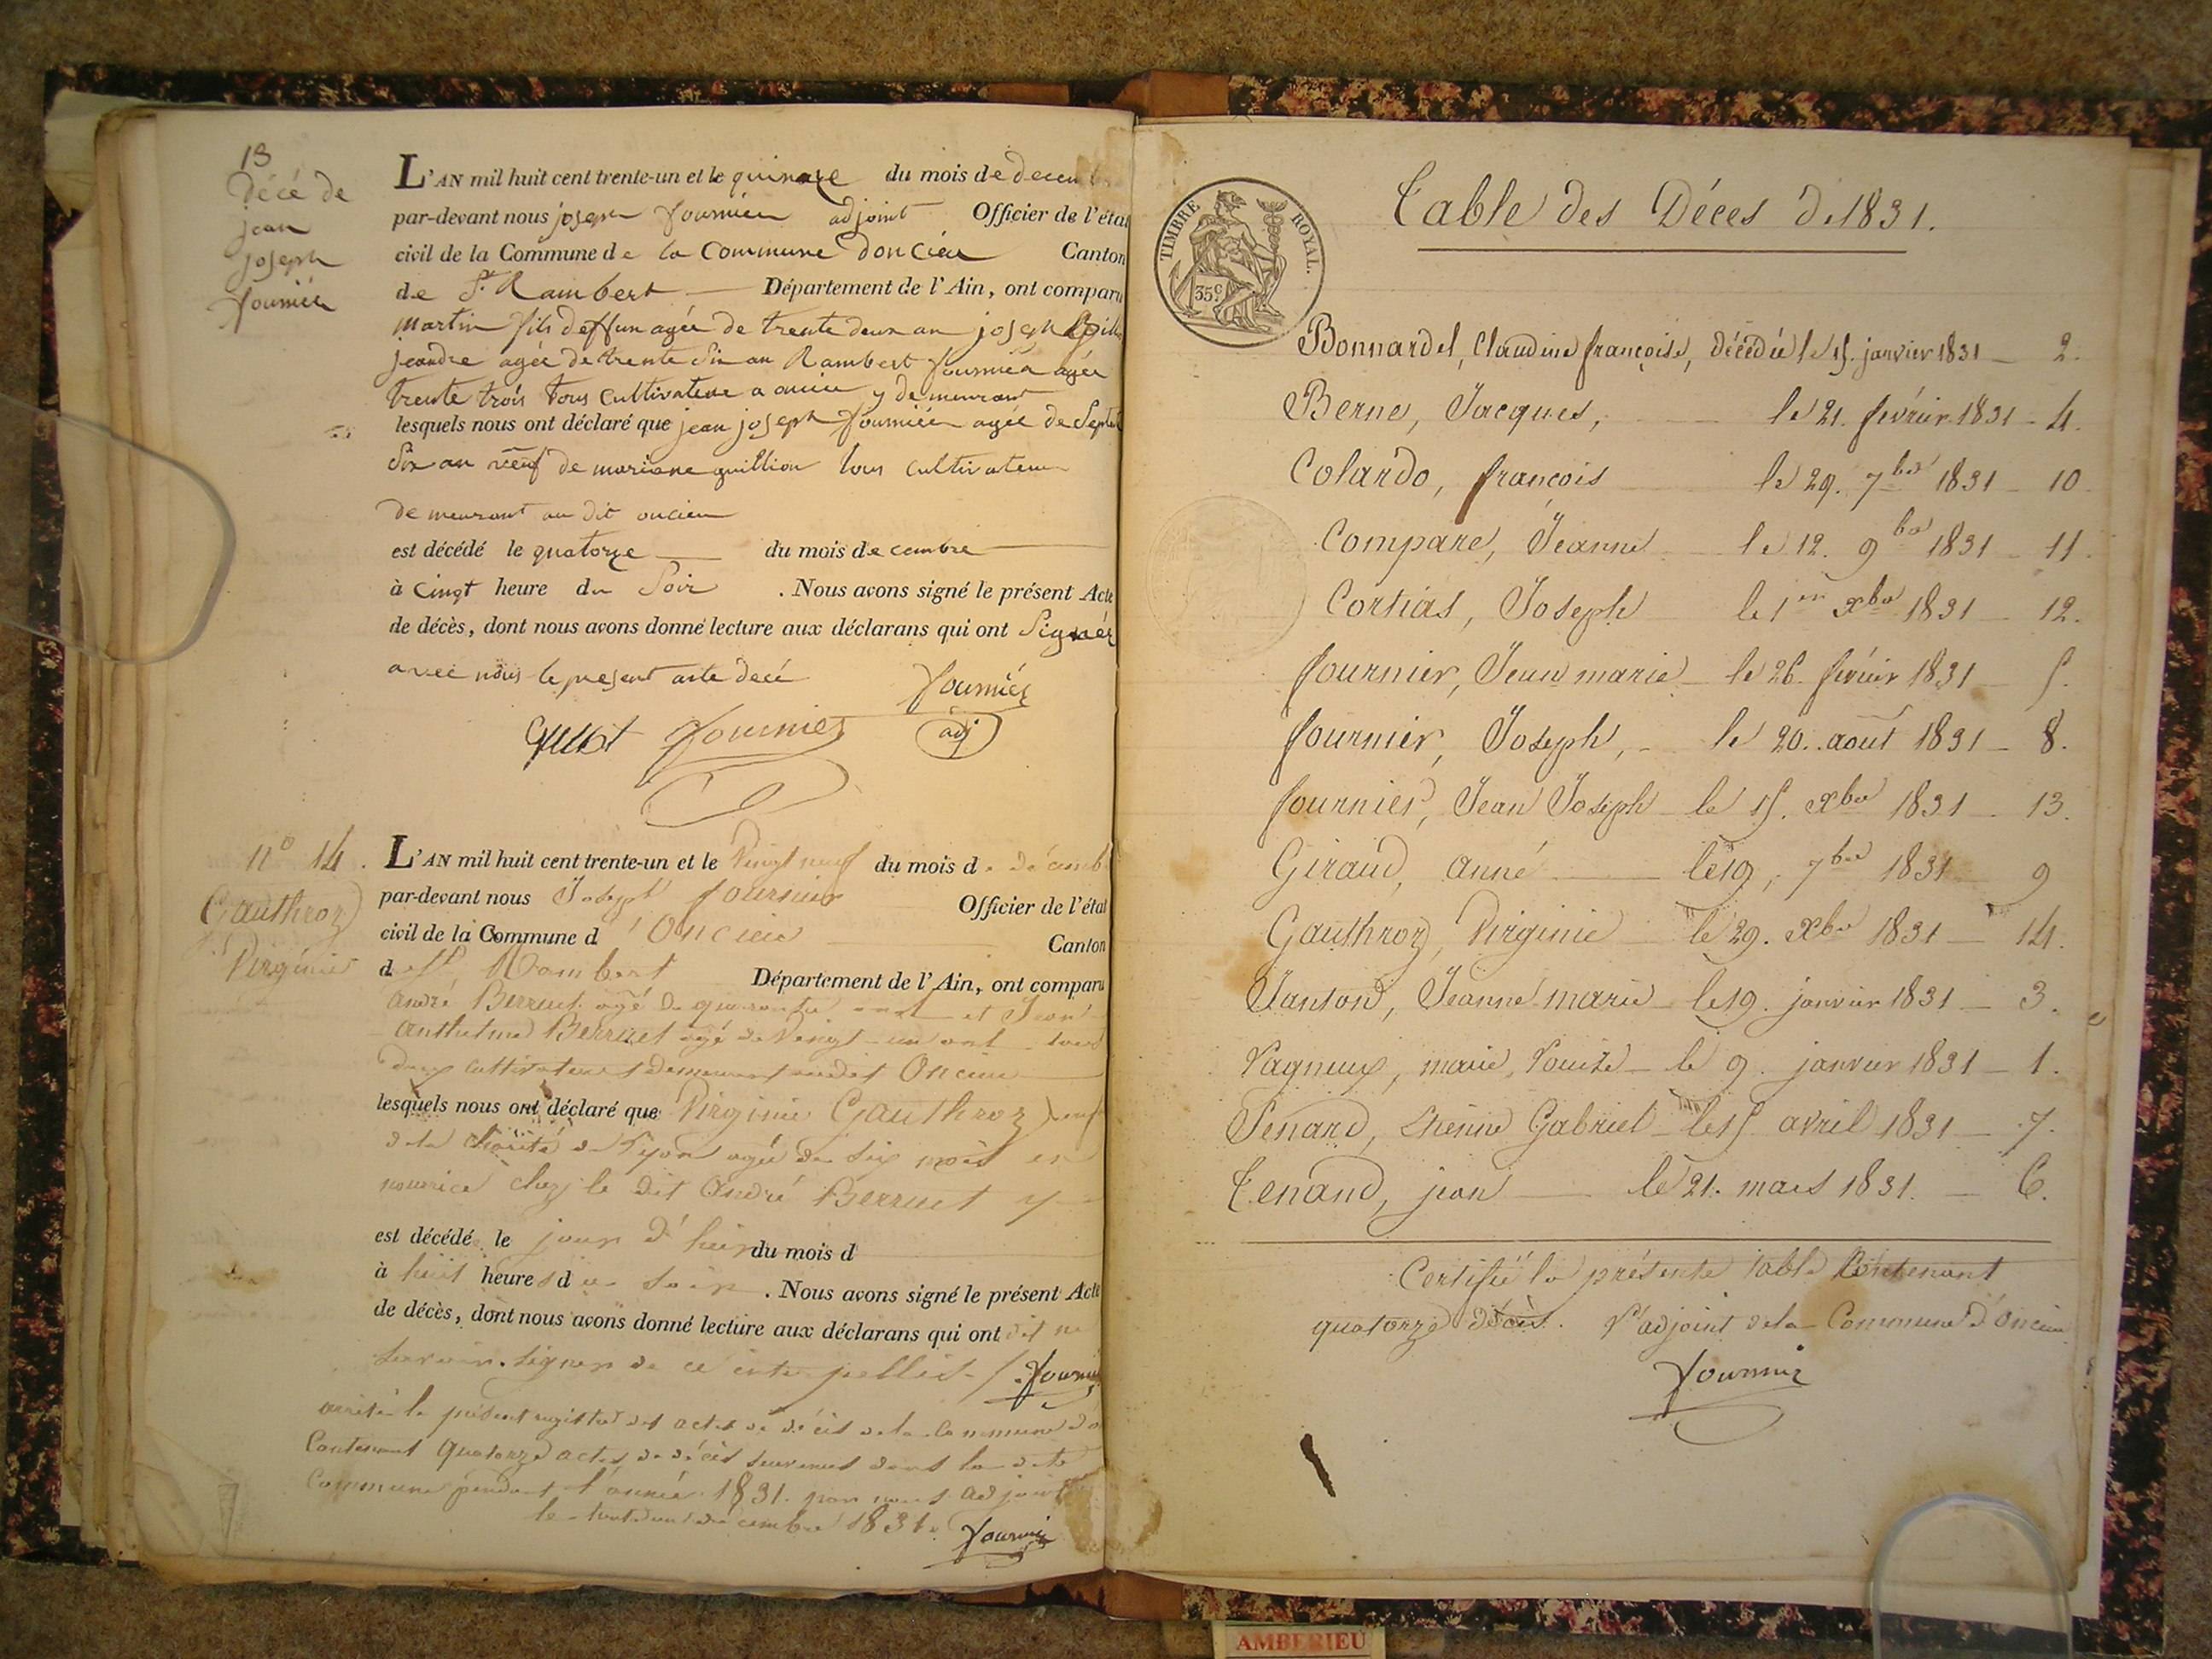 13
Décé de
jean
joseph
fournier
L'AN mil huit cent trente-un et le quinaze du mois de decemb
par-devant nous joseph fournier adjoint Officier de l'état
civil de la Commune de la Commune doncieu Canton
de St Rambert Département de l'Ain, ont comparu
martin fils deffun agée de trente deux an joseph
jeandre agée de trente Six an Rambert fournier agée
trente trois tous Cultivateur a oncieu y demeurant
lesquels nous ont déclaré que jean joseph fournier agée de Septent
Six an veuf de mariane guillion tous cultivateur
demeurant au dit oncieu
est décédé le quatorze du mois decembre
à Cinqt heure du Soir . Nous avons signé le présent Acte
de décès, dont nous avons donné lecture aux déclarans qui ont Signér
avec nous le present acte decé
fournier
adj
fournier
n° 14.
Gauthroz
Virginie
L'AN mil huit cent trente-un et le Vingt neuf du mois de décemb
par-devant nous Joseph fournier Officier de l'état
civil de la Commune d'Oncieu Canton
de St Rambert Département de l'Ain, ont comparu
André Berruet agé de quarante ans et Jean
Anthelme Berruet agé de Vingt-un ans tous
deux cultivateurs demeurant audit Oncieu
lesquels nous ont déclaré que Virginie Gauthroz
de la charité de Lyon agée de six mois en
nourice chez le dit André Berruet y
est décédé le jour d'hier du mois d
à huit heures du soir . Nous avons signé le présent Acte
de décès, dont nous avons donné lecture aux déclarans qui ont dit ne
savoir signer de ce interpellés. fournier
arrêté le présent registre des actes de décès de la Commune d'o
Contenant quatorze actes de décès survenus dans la dite
Commune pendant l'année 1831. par nous adjoint
le trente un décembre 1831. fournier
TIMBRE ROYAL.
35c
Table des Déces de 1831.
Bonnardel, Claudine françoise, décédée le 15. janvier 1831 2.
Berne, Jacques, le 21. février 1831 4.
Colardo, françois le 29. 7bre 1831 10
Compare, Jeanne le 12. 9bre 1831 11.
Cortias, Joseph le 1er xbre 1831 12.
fournier, Jean marie le 26. février 1831 5.
fournier, Joseph, le 20. aout 1831 8.
fournier, Jean Joseph le 15. xbre 1831 13.
Giraud, anne le 19, 7bre 1831 9
Gauthroz, Virginie le 29. xbre 1831 14.
Janton, Jeanne marie le 19. janvier 1831 3.
Vagneux, marie Louise le 9. janvier 1831 1.
Penard, Etienne Gabriel le 15 avril 1831 7.
Tenand, jean le 21. mars 1831. 6.
Certifié la présente table Contenant
quatorze décès. L'adjoint de la Commune d'Oncieu
fournier
AMBERIEU